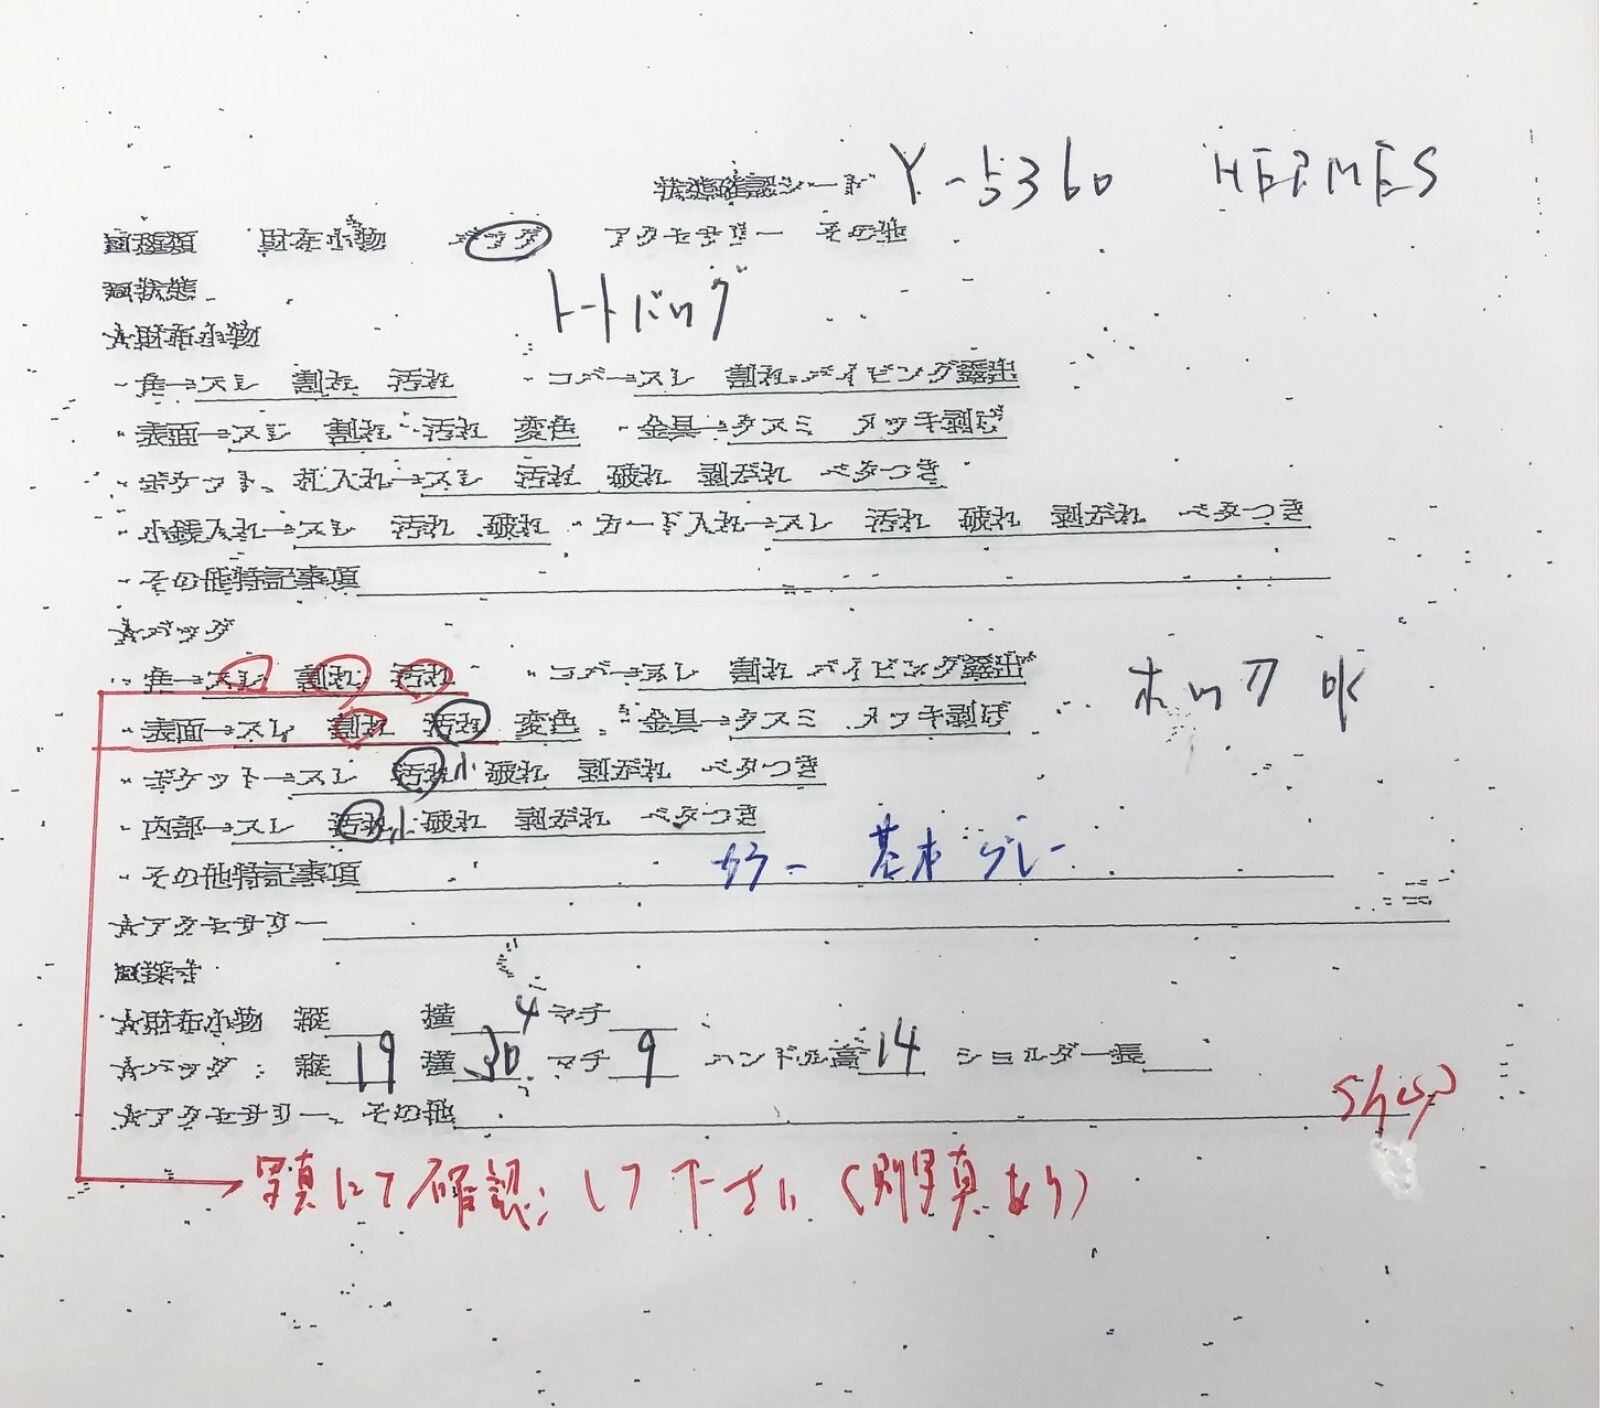 状態確認シート Y-5360 HERMES
■種類 財布小物 バッグ アクセサリー その他
■状態 トートバッグ
★財布小物
・角→スレ 割れ 汚れ ・コバ→スレ 割れ パイピング露出
・表面→スレ 割れ 汚れ 変色 ・金具→クスミ メッキ剥げ
・ポケット、札入れ→スレ 汚れ 破れ 剥がれ ベタつき
・小銭入れ→スレ 汚れ 破れ ・カード入れ→スレ 汚れ 破れ 剥がれ ベタつき
・その他特記事項
★バッグ
・角→スレ 割れ 汚れ ・コバ→スレ 割れ パイピング露出
・表面→スレ 割れ 汚れ 変色 ・金具→クスミ メッキ剥げ ホック
・ポケット→スレ 汚れ小 破れ 剥がれ ベタつき
・内部→スレ 汚れ小 破れ 剥がれ ベタつき
・その他特記事項 カラー 基本グレー
★アクセサリー
■採寸
★財布小物 縦 横 マチ
★バッグ: 縦19 横30 マチ9 ハンドル高14 ショルダー長
★アクセサリー、その他 shop
写真にて確認して下さい(別写真あり)